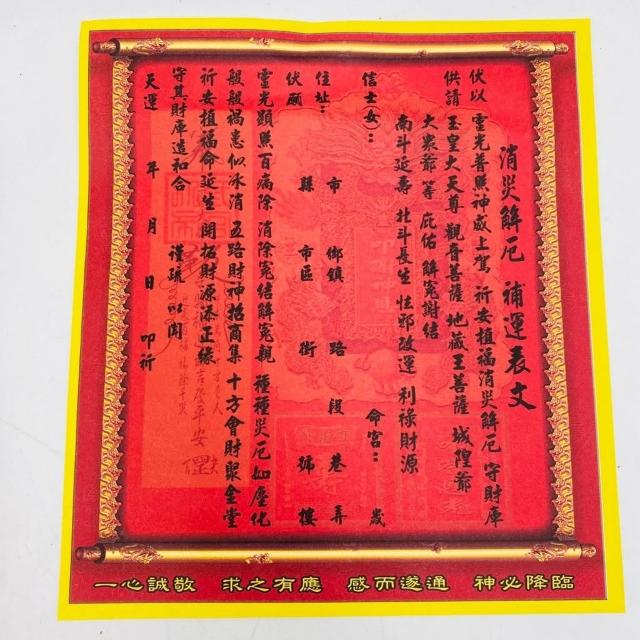 消災解厄 補運表文
伏以 靈光普照神威上駕 祈安植福消災解厄 守財庫
供請 玉皇大天尊 觀音菩薩 地藏王菩薩 城隍爺
大衆爺等 庇佑 解冤謝結
南斗延壽 北斗長生 怯邪改運 利祿財源
信士(女): 命宮: 歲
住址: 市 鄉鎮 路 段 巷 弄
縣 市區 街 號 樓
伏願
靈光顯照百病除 消除冤結解冤親 種種災厄如塵化
般般禍患似冰消 五路財神招商集 十方會財聚金堂
祈安植福命延生 開拓財源添正緣
守其財庫造和合 謹疏 以聞
天運 年 月 日 叩祈
平安
一心誠敬 求之有應 感而遂通 神必降臨